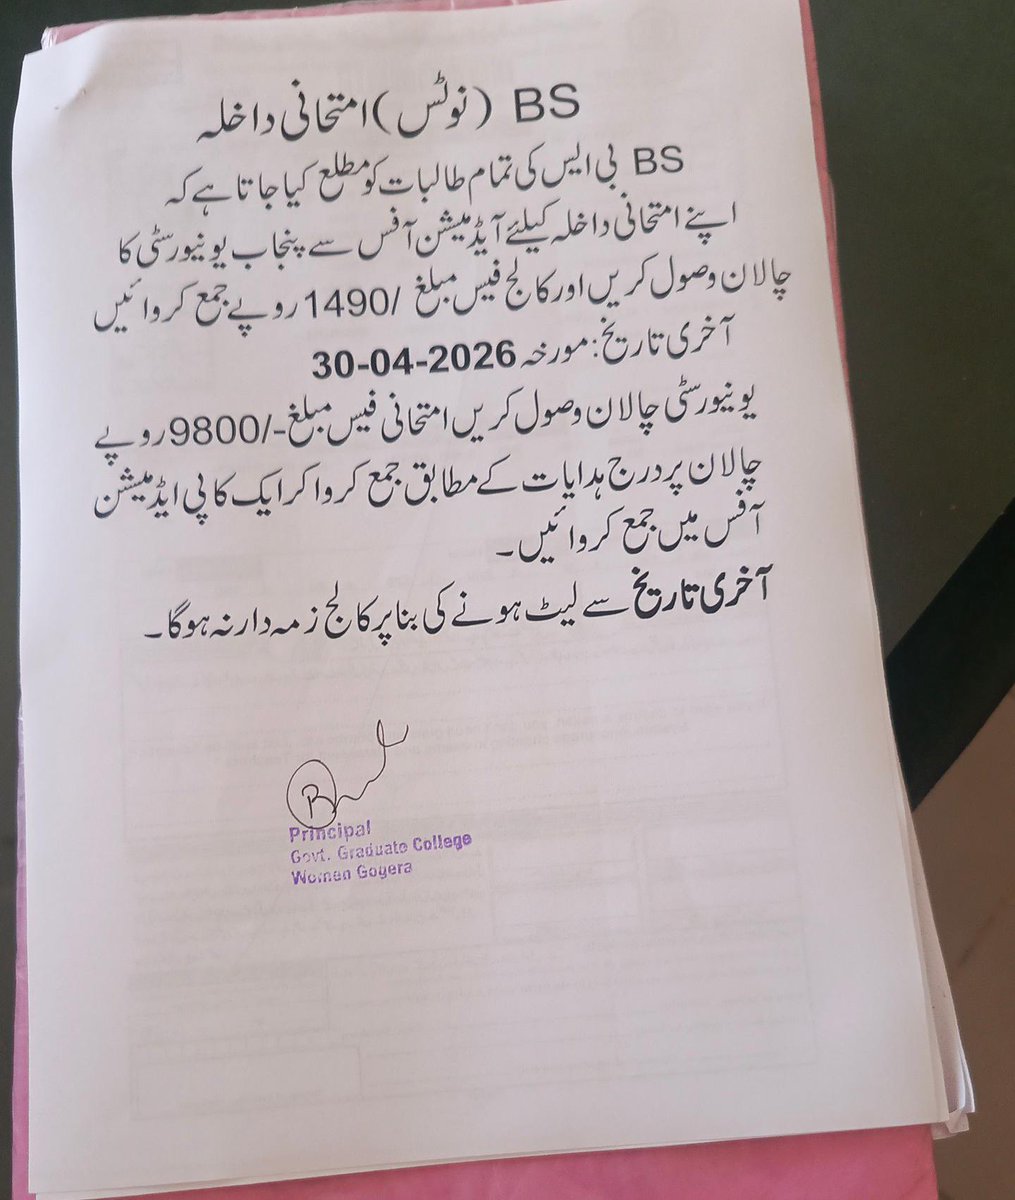 BS (نوٹس) امتحانی داخلہ
BS بی ایس کی تمام طالبات کو مطلع کیا جاتا ہے کہ
اپنے امتحانی داخلہ کیلئے آیڈمیشن آفس سے پنجاب یونیورسٹی کا
چالان وصول کریں اور کالج فیس مبلغ /1490 روپے جمع کروائیں
آخری تاریخ: مورخہ 30-04-2026
یونیورسٹی چالان وصول کریں امتحانی فیس مبلغ -/9800 روپے
چالان پر درج ہدایات کے مطابق جمع کروا کر ایک کاپی ایڈمیشن
آفس میں جمع کروائیں۔
آخری تاریخ سے لیٹ ہونے کی بنا پر کالج زمہ دار نہ ہوگا۔
Principal
Govt. Graduate College
Women Gogera